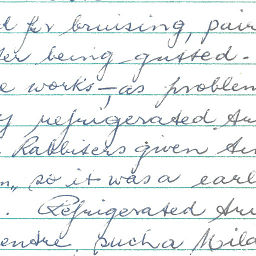 d for bruising, pair
ter being gutted.
e works - as problem
y refrigerated tru
. Rabbiters given
so it was a earl
. Refrigerated tru
such a Mild